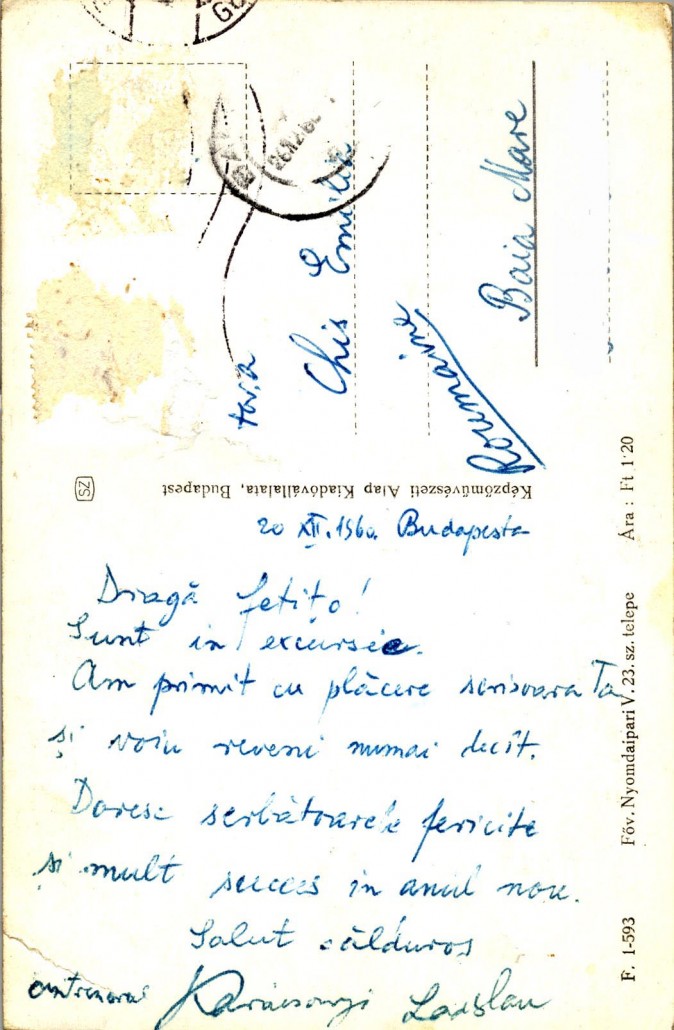 20 XII. 1960 Budapesta
Dragă fetițo!
Sunt in excursie.
Am primit cu plăcere scrisoarea Ta
și voiu reveni numai decît.
Doresc serbătoarele fericite
și mult succes in anul nou.
Salut călduros
antrenorul Karácsonyi Ladislau
tov,a
Chis Emilia
Roumaine
Baia Mare
Képzőművészeti Alap Kiadóvállalata, Budapest
SZ
F. 1-593 Főv. Nyomdaipari V. 23. sz. telepe Ára : Ft 1·20